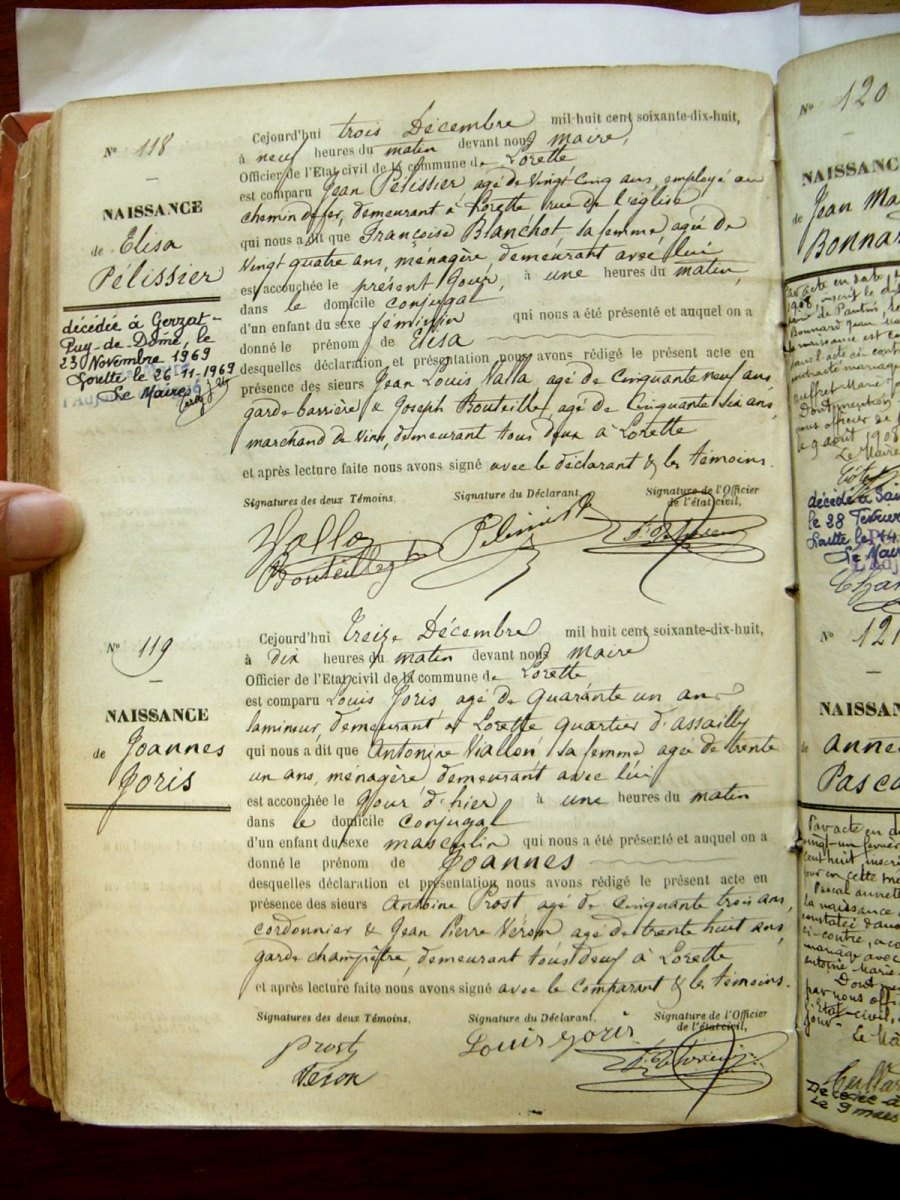 Nº 118
NAISSANCE
de Elisa
Pélissier
décédée à Gerzat-
Puy-de-Dome, le
23 Novembre 1969
Lorette le 26-11-1969
Le Maire
Cejourd'hui trois Décembre mil huit cent soixante-dix-huit,
à neuf heures du matin devant nous maire,
Officier de l'Etat civil de la commune de Lorette
est comparu Jean Pélissier agé de vingt cinq ans, employé au
chemin de fer, demeurant à Lorette rue de l'église
qui nous a dit que Françoise Blanchot sa femme agée de
vingt quatre ans, ménagère demeurant avec lui
est accouchée le présent jour, à une heures du matin,
dans le domicile conjugal
d'un enfant du sexe féminin qui nous a été présenté et auquel on a
donné le prénom de Elisa
desquelles déclaration et présentation nous avons rédigé le présent acte en
présence des sieurs Jean Louis Valla agé de cinquante neuf ans,
garde barrière & Joseph Bouteille, agé de cinquante six ans,
marchand de vins, demeurant tous deux à Lorette
et après lecture faite nous avons signé avec le déclarant & les témoins.
Signatures des deux Témoins. Signature du Déclarant. Signature de l'Officier
de l'état civil,
Valla
Bouteille
Nº 119
NAISSANCE
de Joannes
Joris
Cejourd'hui treize Décembre mil huit cent soixante-dix-huit,
à dix heures du matin devant nous maire
Officier de l'Etat civil de la commune de Lorette
est comparu Louis Joris agé de quarante un ans
lamineur, demeurant à Lorette quartier d'assailly
qui nous a dit que Antonine Viallon sa femme agée de trente
un ans, ménagère demeurant avec lui
est accouchée le jour d'hier à une heures du matin
dans le domicile conjugal
d'un enfant du sexe masculin qui nous a été présenté et auquel on a
donné le prénom de Joannes
desquelles déclaration et présentation nous avons rédigé le présent acte en
présence des sieurs Antoine Prost, agé de cinquante trois ans,
cordonnier & Jean Pierre Véron agé de trente huit ans,
garde champêtre, demeurant tous deux à Lorette
et après lecture faite nous avons signé avec le comparant & les témoins.
Signatures des deux Témoins. Signature du Déclarant. Signature de l'Officier
de l'état civil,
Prost Louis Joris
Véron
Nº 120
NAISSANC
de Jean Ma
Bonnar
Le Maire
décédé à Sai
le 28 Février
Lorette le 14
Le Mair
Nº 121
NAISSAN
de anne
Pasca
Par acte en d
vingt-un février
cent huit inscri
Pascal annett
la naissance
constatée dans
ci-contre, a co
mariage avec
antoine Marie
Dont me
par nous offi
l'Etat-civil,
jour
Le Ma
Décédée à
Le 9 mars